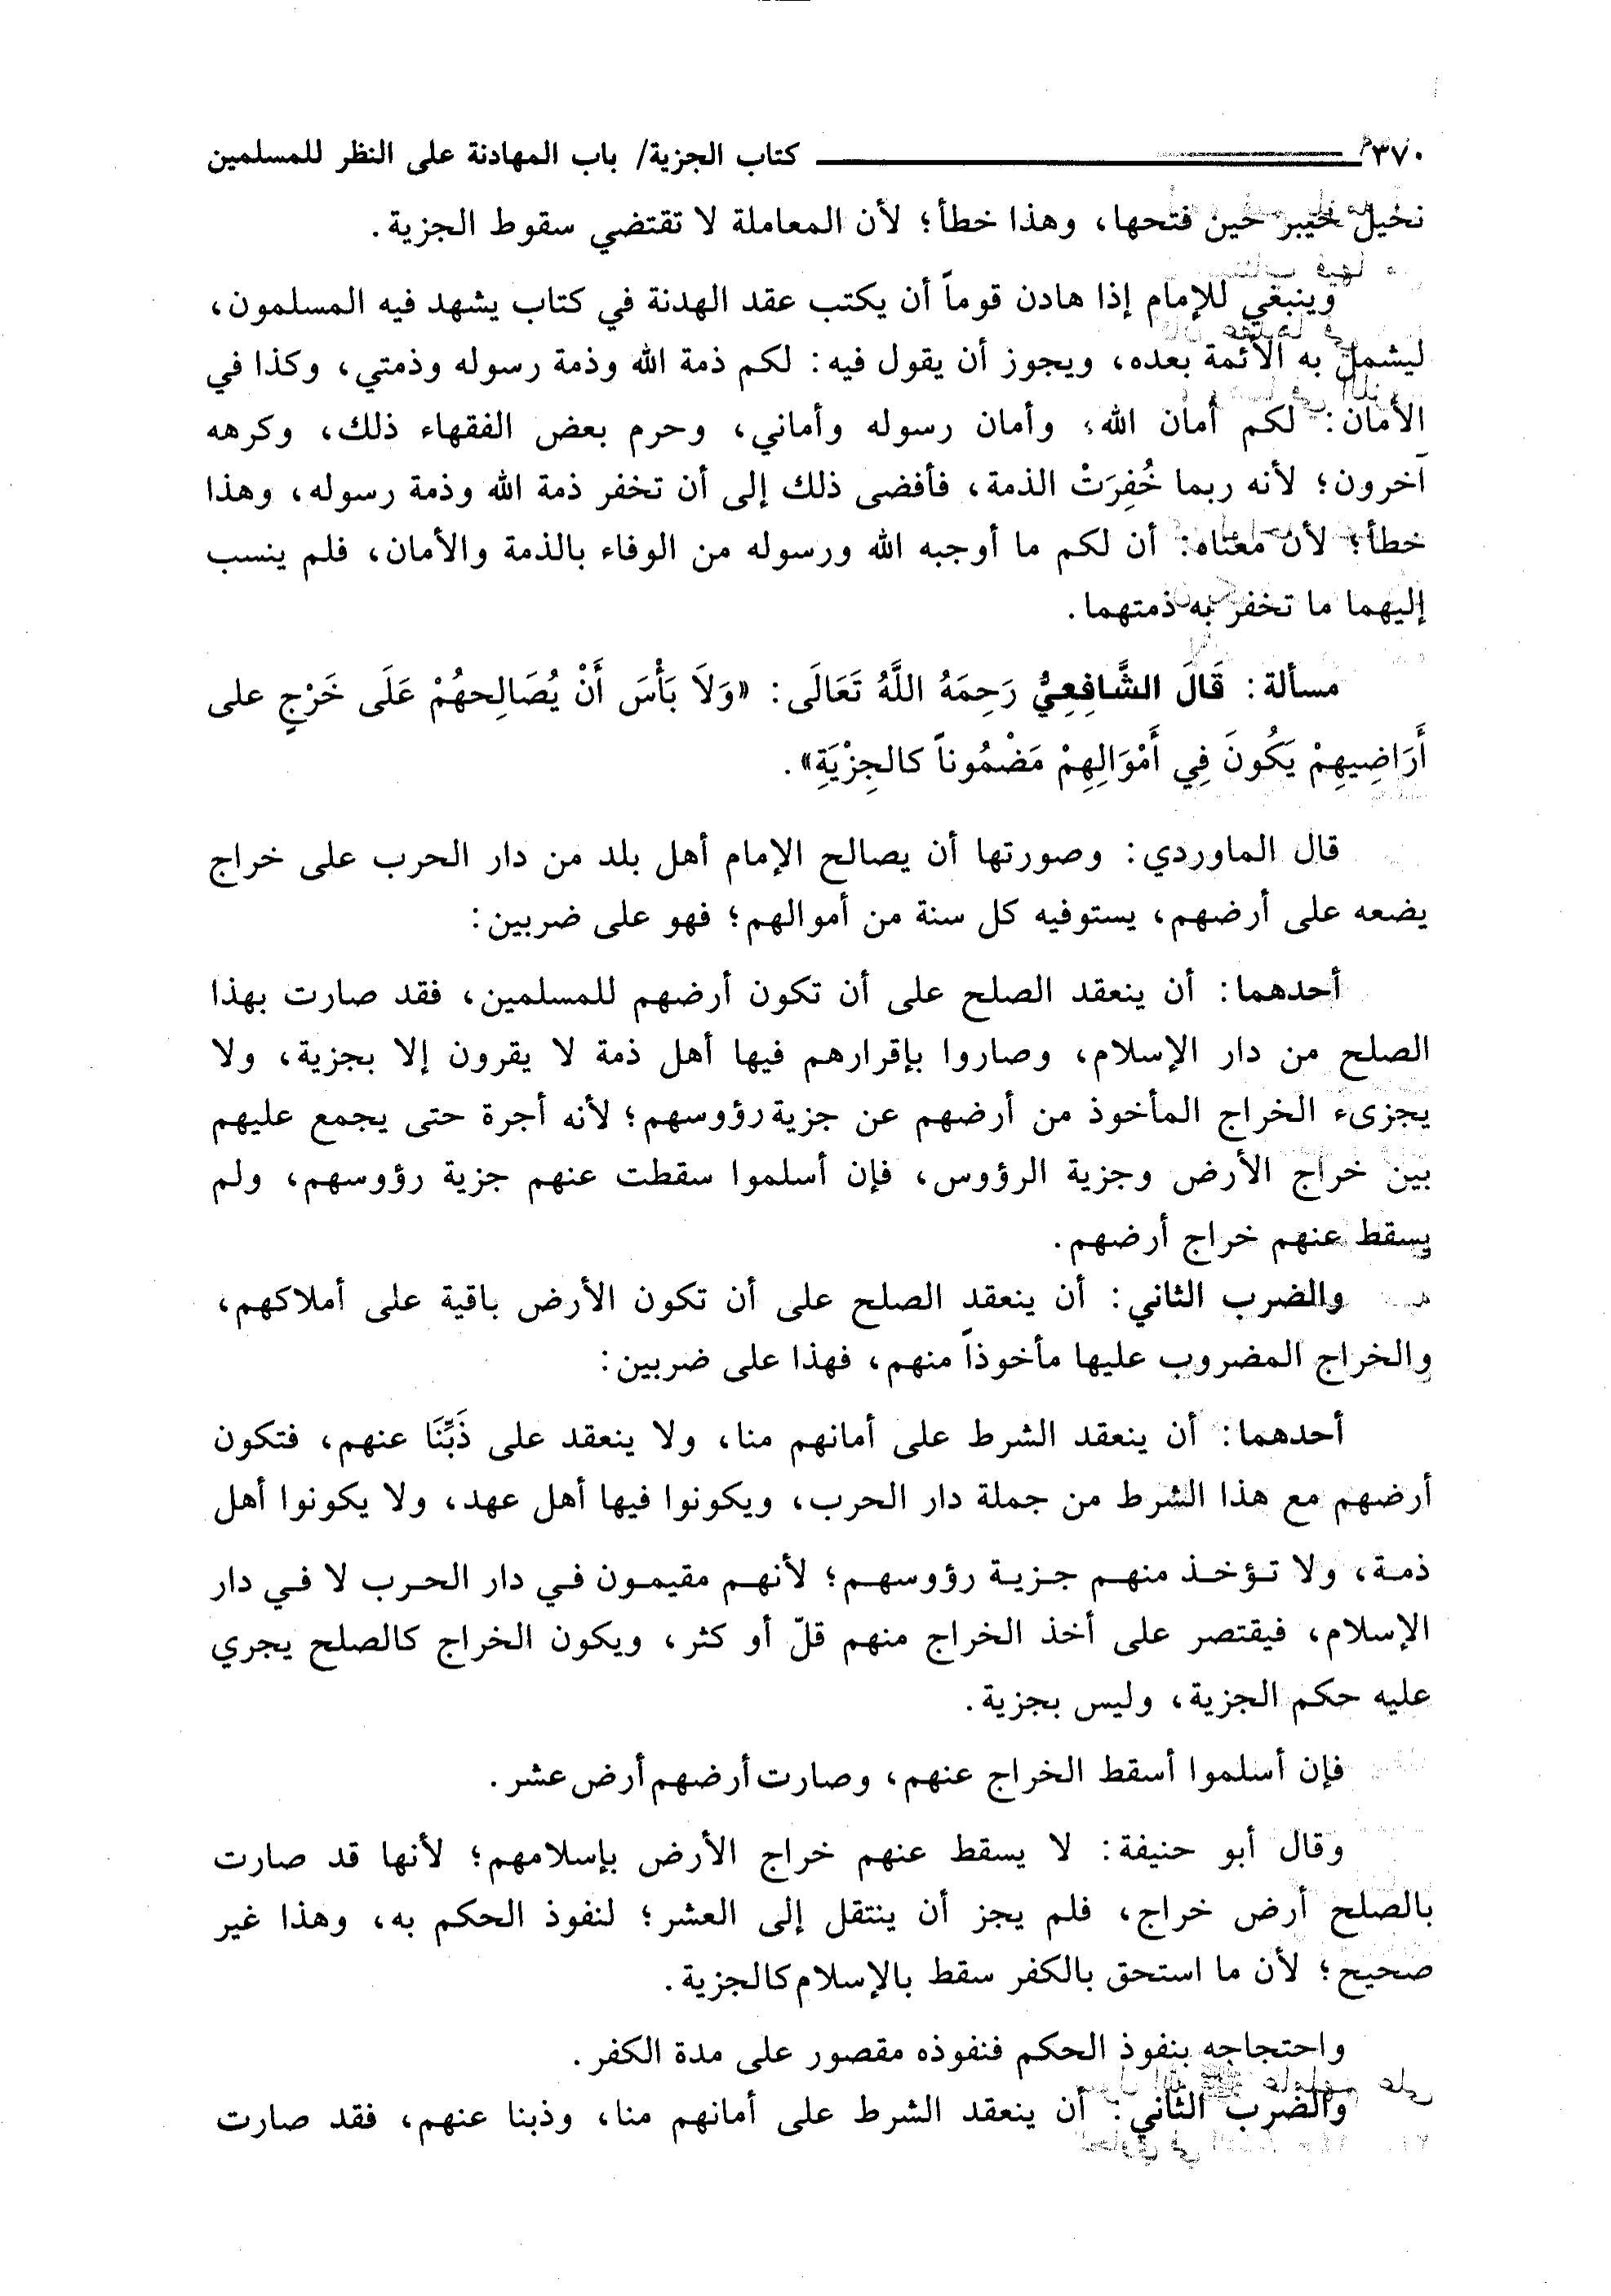 ٣٧٠ كتاب الجزية/ باب المهادنة على النظر للمسلمين
نخيل خيبر حين فتحها، وهذا خطأ؛ لأن المعاملة لا تقتضي سقوط الجزية.
وينبغي للإمام إذا هادن قوماً أن يكتب عقد الهدنة في كتاب يشهد فيه المسلمون،
ليشمل به الأئمة بعده، ويجوز أن يقول فيه: لكم ذمة الله وذمة رسوله وذمتي، وكذا في
الأمان: لكم أمان الله، وأمان رسوله وأماني، وحرم بعض الفقهاء ذلك، وكرهه
آخرون؛ لأنه ربما خُفِرَتْ الذمة، فأفضى ذلك إلى أن تخفر ذمة الله وذمة رسوله، وهذا
خطأ؛ لأن معناه: أن لكم ما أوجبه الله ورسوله من الوفاء بالذمة والأمان، فلم ينسب
إليهما ما تخفر به ذمتهما.
مسألة: قَالَ الشَّافِعِيُّ رَحِمَهُ اللَّهُ تَعَالَى: «وَلاَ بَأْسَ أَنْ يُصَالِحهُمْ عَلَى خَرْجٍ على
أَرَاضِيهِمْ يَكُونَ فِي أَمْوَالِهِمْ مَضْمُوناً كالجِزْيَةِ».
قال الماوردي: وصورتها أن يصالح الإمام أهل بلد من دار الحرب على خراج
يضعه على أرضهم، يستوفيه كل سنة من أموالهم؛ فهو على ضربين:
أحدهما: أن ينعقد الصلح على أن تكون أرضهم للمسلمين، فقد صارت بهذا
الصلح من دار الإسلام، وصاروا بإقرارهم فيها أهل ذمة لا يقرون إلا بجزية، ولا
يجزىء الخراج المأخوذ من أرضهم عن جزية رؤوسهم؛ لأنه أجرة حتى يجمع عليهم
بين خراج الأرض وجزية الرؤوس، فإن أسلموا سقطت عنهم جزية رؤوسهم، ولم
يسقط عنهم خراج أرضهم.
والضرب الثاني: أن ينعقد الصلح على أن تكون الأرض باقية على أملاكهم،
والخراج المضروب عليها مأخوذاً منهم، فهذا على ضربين:
أحدهما: أن ينعقد الشرط على أمانهم منا، ولا ينعقد على ذَبِّنَا عنهم، فتكون
أرضهم مع هذا الشرط من جملة دار الحرب، ويكونوا فيها أهل عهد، ولا يكونوا أهل
ذمة، ولا تؤخذ منهم جزية رؤوسهم؛ لأنهم مقيمون في دار الحرب لا في دار
الإسلام، فيقتصر على أخذ الخراج منهم قلّ أو كثر، ويكون الخراج كالصلح يجري
عليه حكم الجزية، وليس بجزية.
فإن أسلموا أسقط الخراج عنهم، وصارت أرضهم أرض عشر.
وقال أبو حنيفة: لا يسقط عنهم خراج الأرض بإسلامهم؛ لأنها قد صارت
بالصلح أرض خراج، فلم يجز أن ينتقل إلى العشر؛ لنفوذ الحكم به، وهذا غير
صحيح؛ لأن ما استحق بالكفر سقط بالإسلام كالجزية.
واحتجاجه بنفوذ الحكم فنفوذه مقصور على مدة الكفر.
والضرب الثاني: أن ينعقد الشرط على أمانهم منا، وذبنا عنهم، فقد صارت